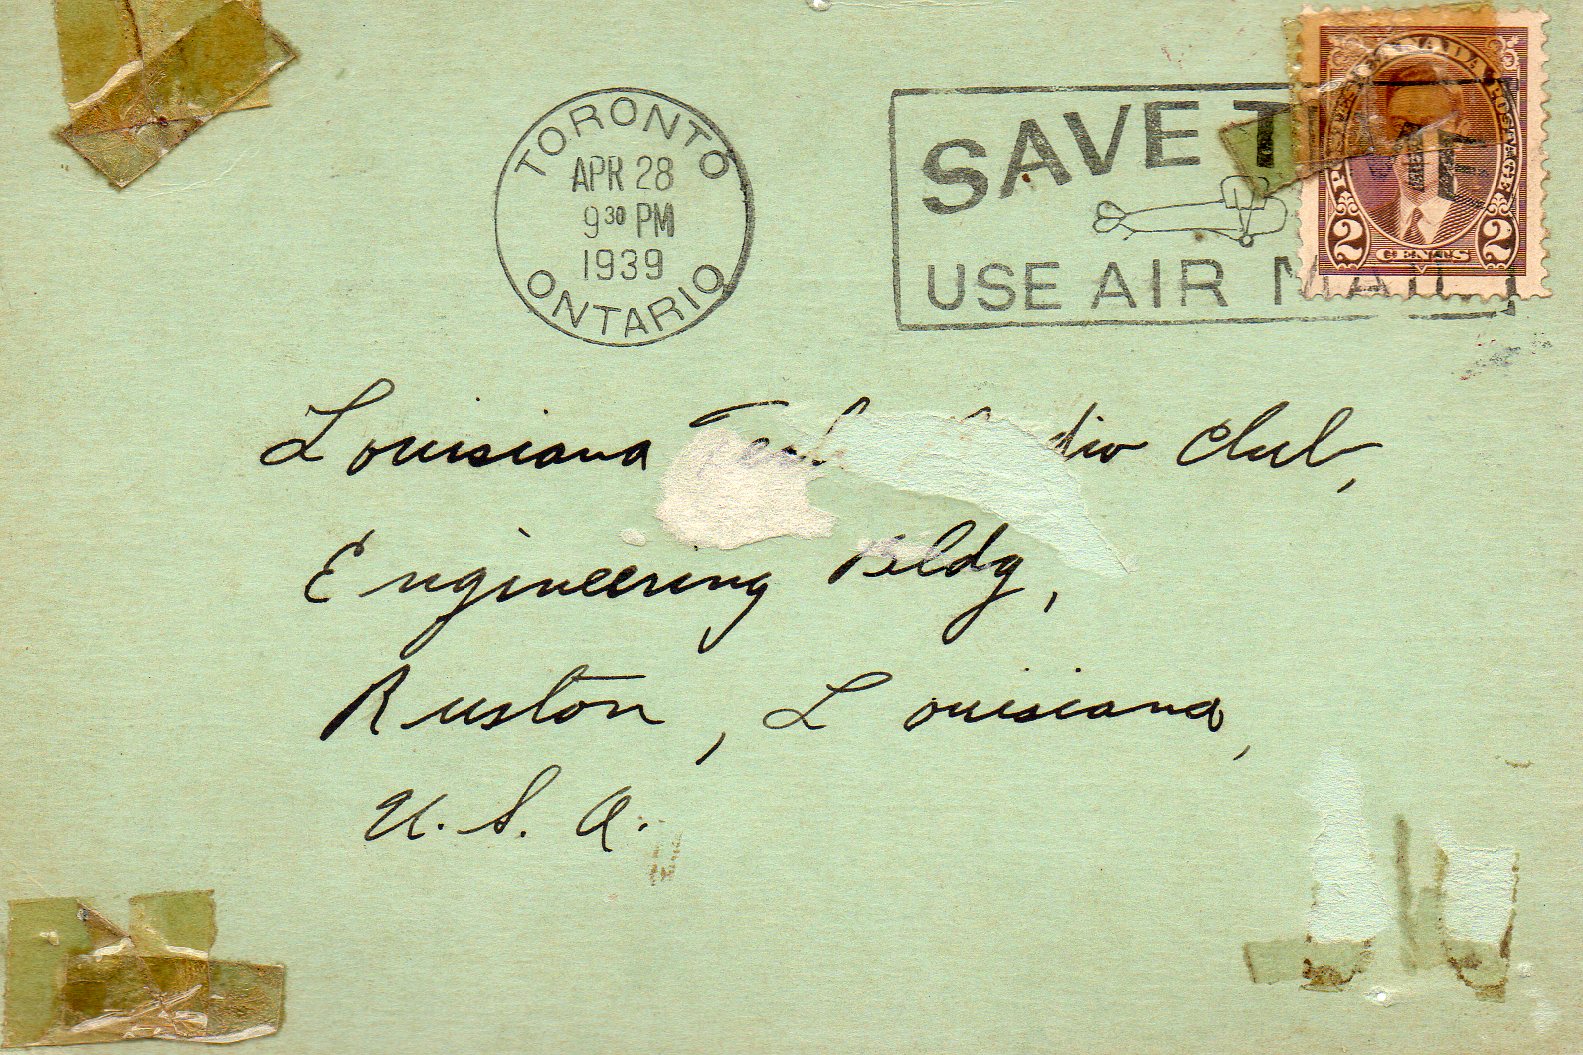 TORONTO
APR 28
9 30 PM
1939
ONTARIO
SAVE TIME
USE AIR MAIL
CANADA
POSTES POSTAGE
2 CENTS 2
Louisiana Tech Radio Club,
Engineering Bldg,
Ruston, Louisiana,
U. S. A.